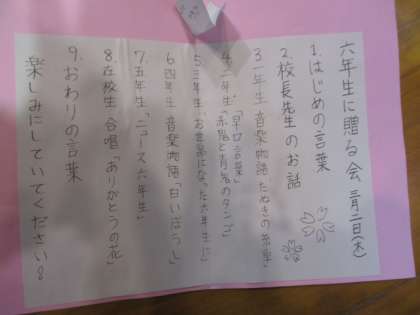 六年生に贈る会 三月二日(木)
1.はじめの言葉
2.校長先生のお話
3.一年生 音楽物語「たぬきの糸車」
4.二年生「早口言葉」
「赤鬼と青鬼のタンゴ」
5.三年生「お世話になった六年生に」
6.四年生 音楽物語「白いぼうし」
7.五年生「ニュース六年生」
8.在校生 合唱「ありがとうの花」
9.おわりの言葉
楽しみにしていてください。